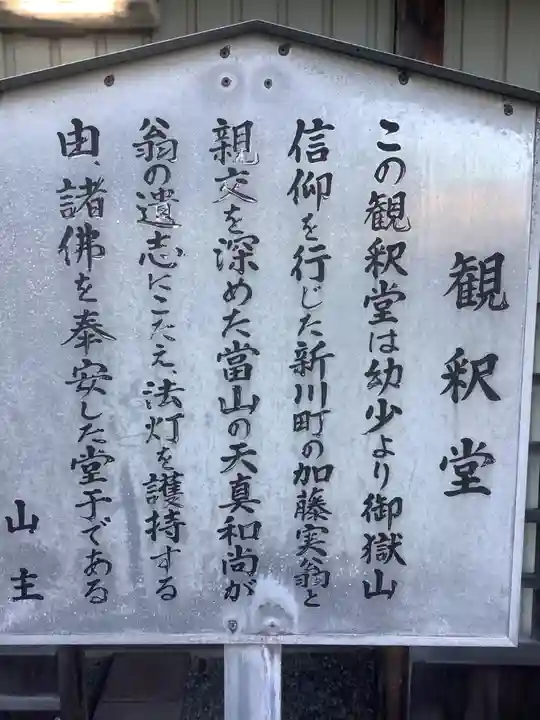 観釈堂
この観釈堂は幼少より御嶽山
信仰を行じた新川町の加藤実翁と
親交を深めた當山の天真和尚が
翁の遺志にこたえ、法灯を護持する
由、諸佛を奉安した堂宇である
山主